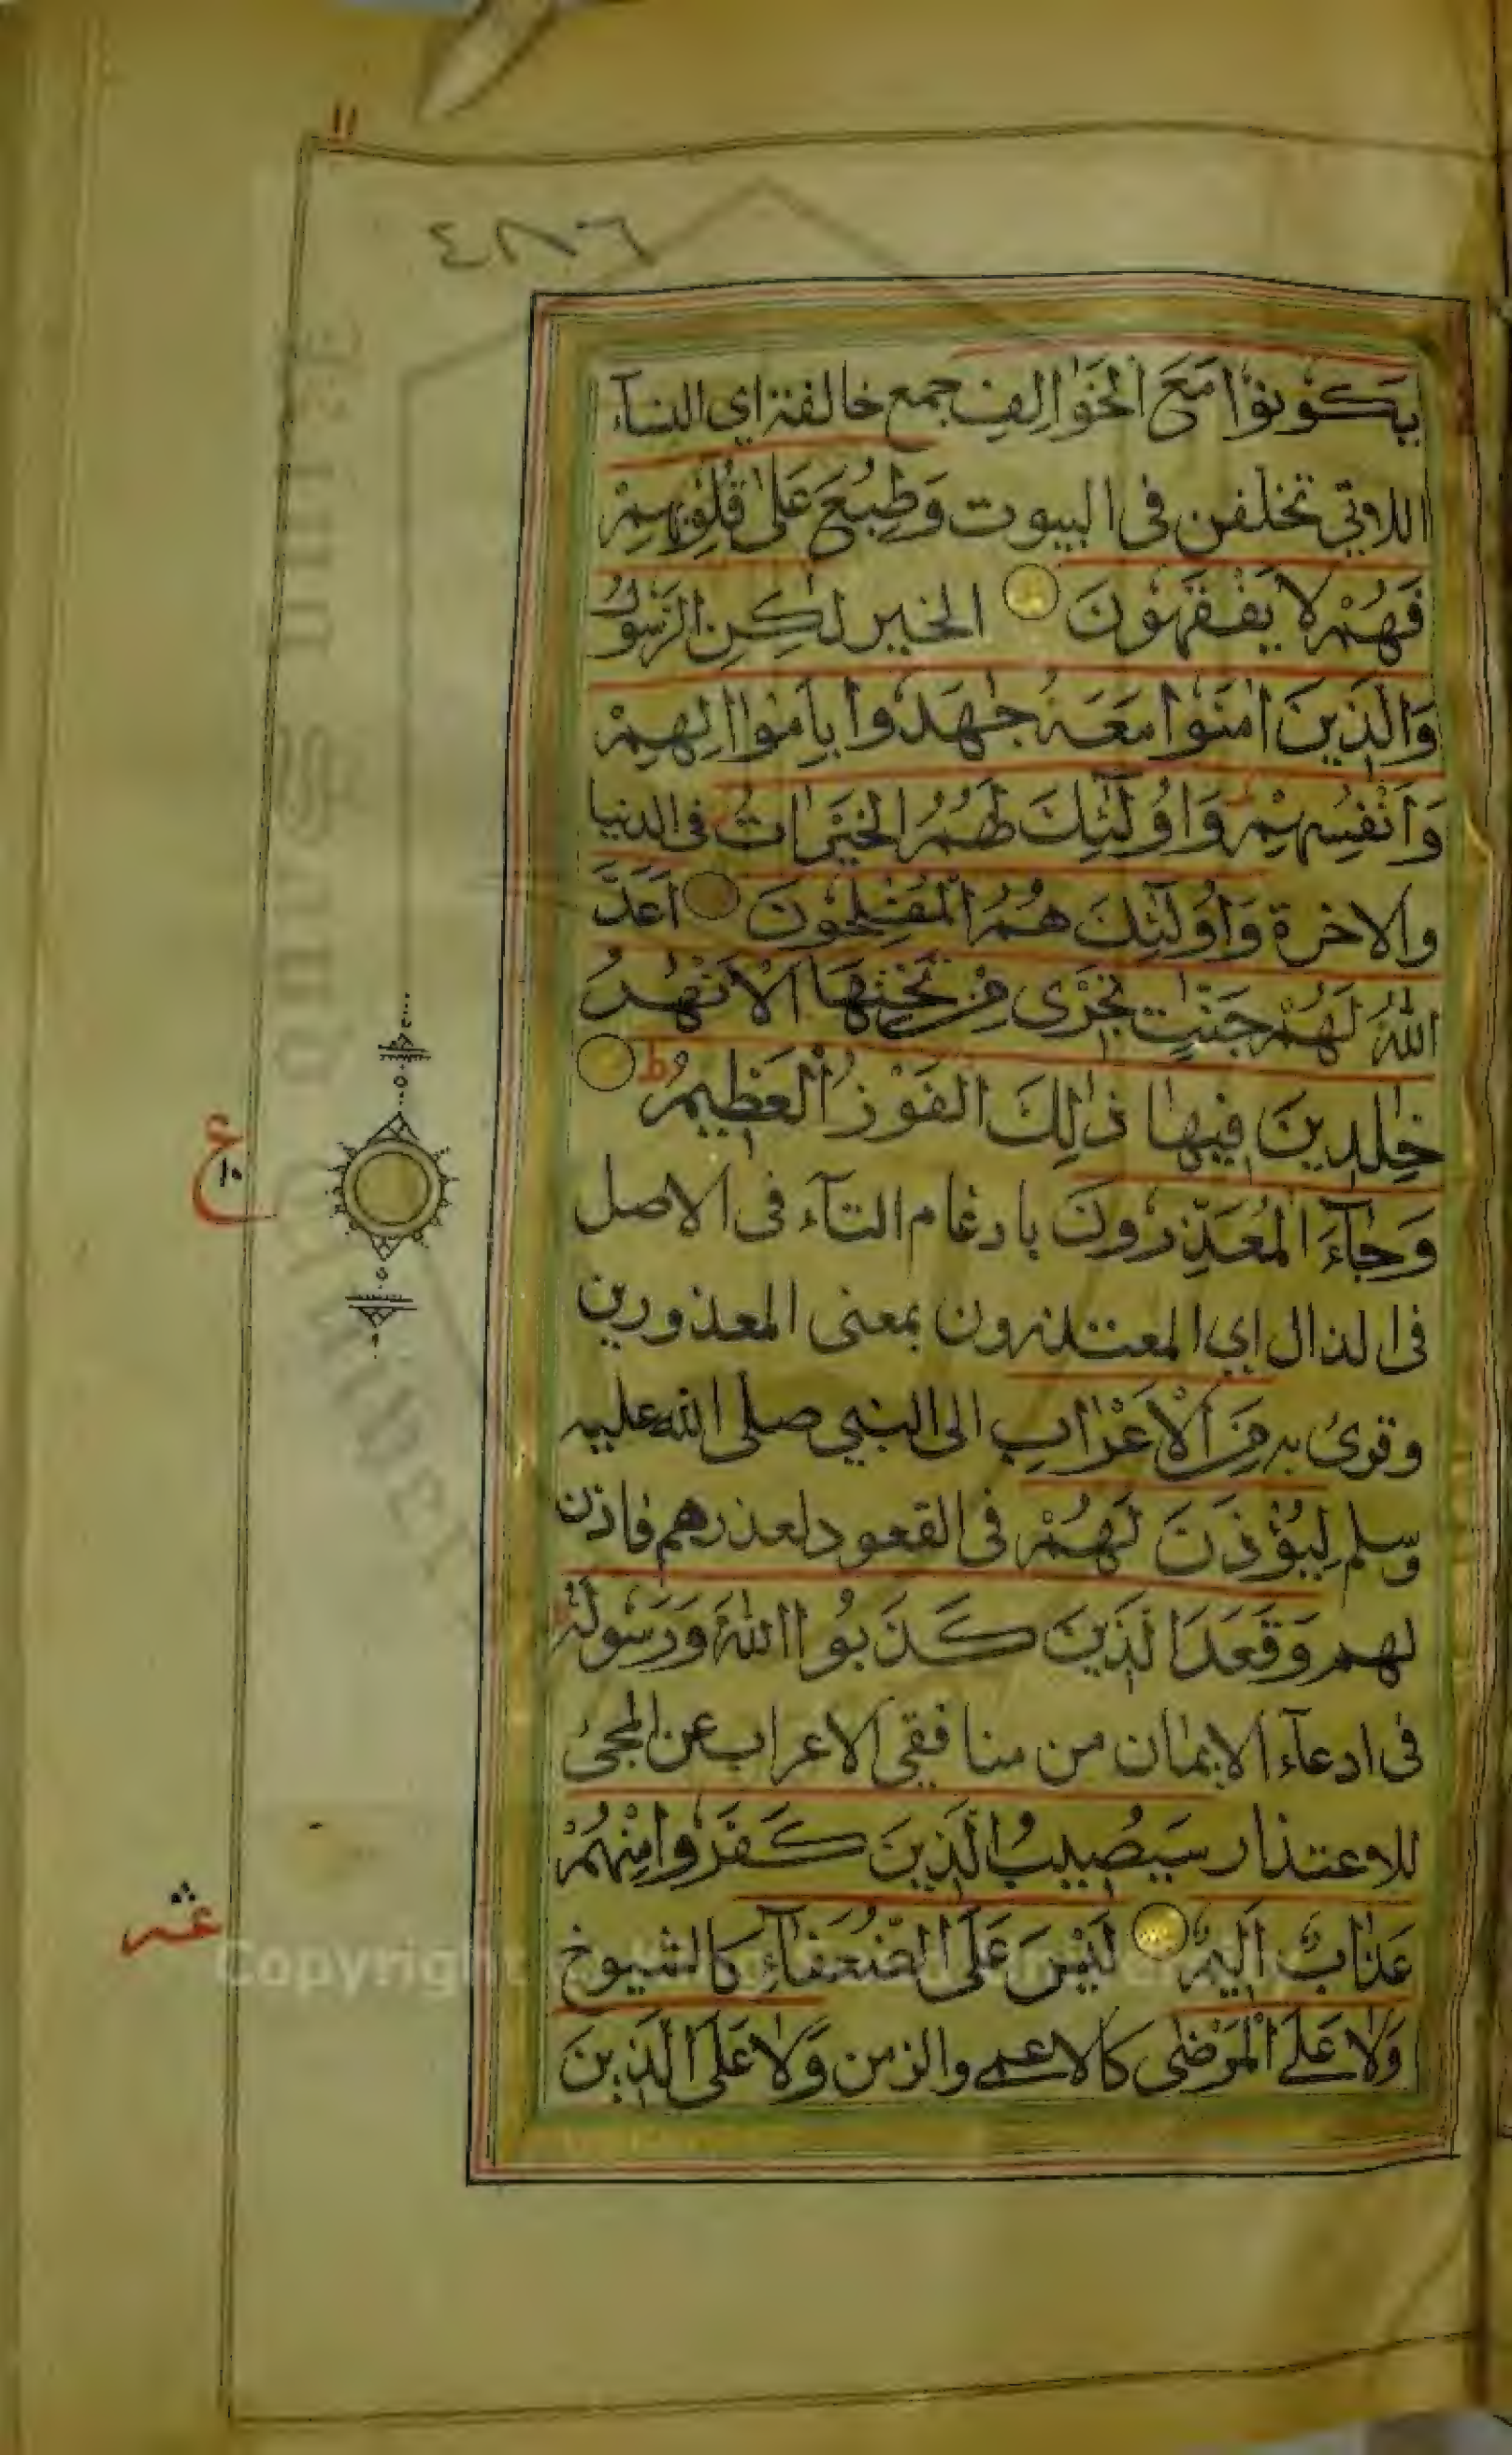 ١١
٤٨٨٦
يَكُوْنُوْا مَعَ الْخَوَالِفِ جمع خالفة اي النسآء
اللاتي تخلفن فى البيوت وَطُبِعَ عَلٰى قُلُوْبِهِمْ
فَهُمْ لَا يَفْقَهُوْنَ الخير لٰكِنِ الرَّسُوْلُ
وَالَّذِيْنَ اٰمَنُوْا مَعَهُ جٰهَدُوا بِاَمْوَالِهِمْ
وَاَنْفُسِهِمْ وَاُولٰٓئِكَ لَهُمُ الْخَيْرَاتُ فى الدنيا
والاخرة وَاُولٰٓئِكَ هُمُ الْمُفْلِحُوْنَ اَعَدَّ
اللّٰهُ لَهُمْ جَنّٰتٍ تَجْرِى مِنْ تَحْتِهَا الْاَنْهٰرُ
خٰلِدِيْنَ فِيْهَا ذٰلِكَ الْفَوْزُ الْعَظِيْمُ ط
وَجَآءَ الْمُعَذِّرُوْنَ بادغام التآء فى الاصل
فى الذال اي المعتذرون بمعنى المعذورين
وقرئ به مِنَ الْاَعْرَابِ الى النبي صلى الله عليه
وسلم لِيُؤْذَنَ لَهُمْ فى القعود لعذرهم فاذن
لهم وَقَعَدَ الَّذِيْنَ كَذَبُوا اللّٰهَ وَرَسُوْلَهُ
فى ادعآء الايمان من منافقي الاعراب عن المجئ
للاعتذار سَيُصِيْبُ الَّذِيْنَ كَفَرُوْا مِنْهُمْ
عَذَابٌ اَلِيْمٌ لَيْسَ عَلَى الضُّعَفَآءِ كالشيوخ
وَلَا عَلَى الْمَرْضٰى كالاعمى والزمن وَلَا عَلَى الَّذِيْنَ
ع
١٠
عشر